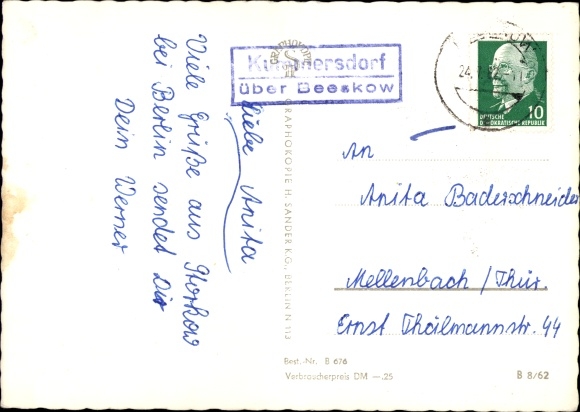 Liebe Anita
Viele Grüße aus Storkow
bei Berlin sendet Dir
Dein Werner
GRAPHOKOPIE H. SANDER K.G., BERLIN N 113
GRAPHOKOPIE
Kummersdorf
über Beeskow
DEUTSCHE
DEMOKRATISCHE REPUBLIK
10
An
Anita Baderschneider
Mellenbach / Thür.
Ernst Thälmannstr. 44
Best.-Nr. B 676
Verbraucherpreis DM —.25
B 8/62